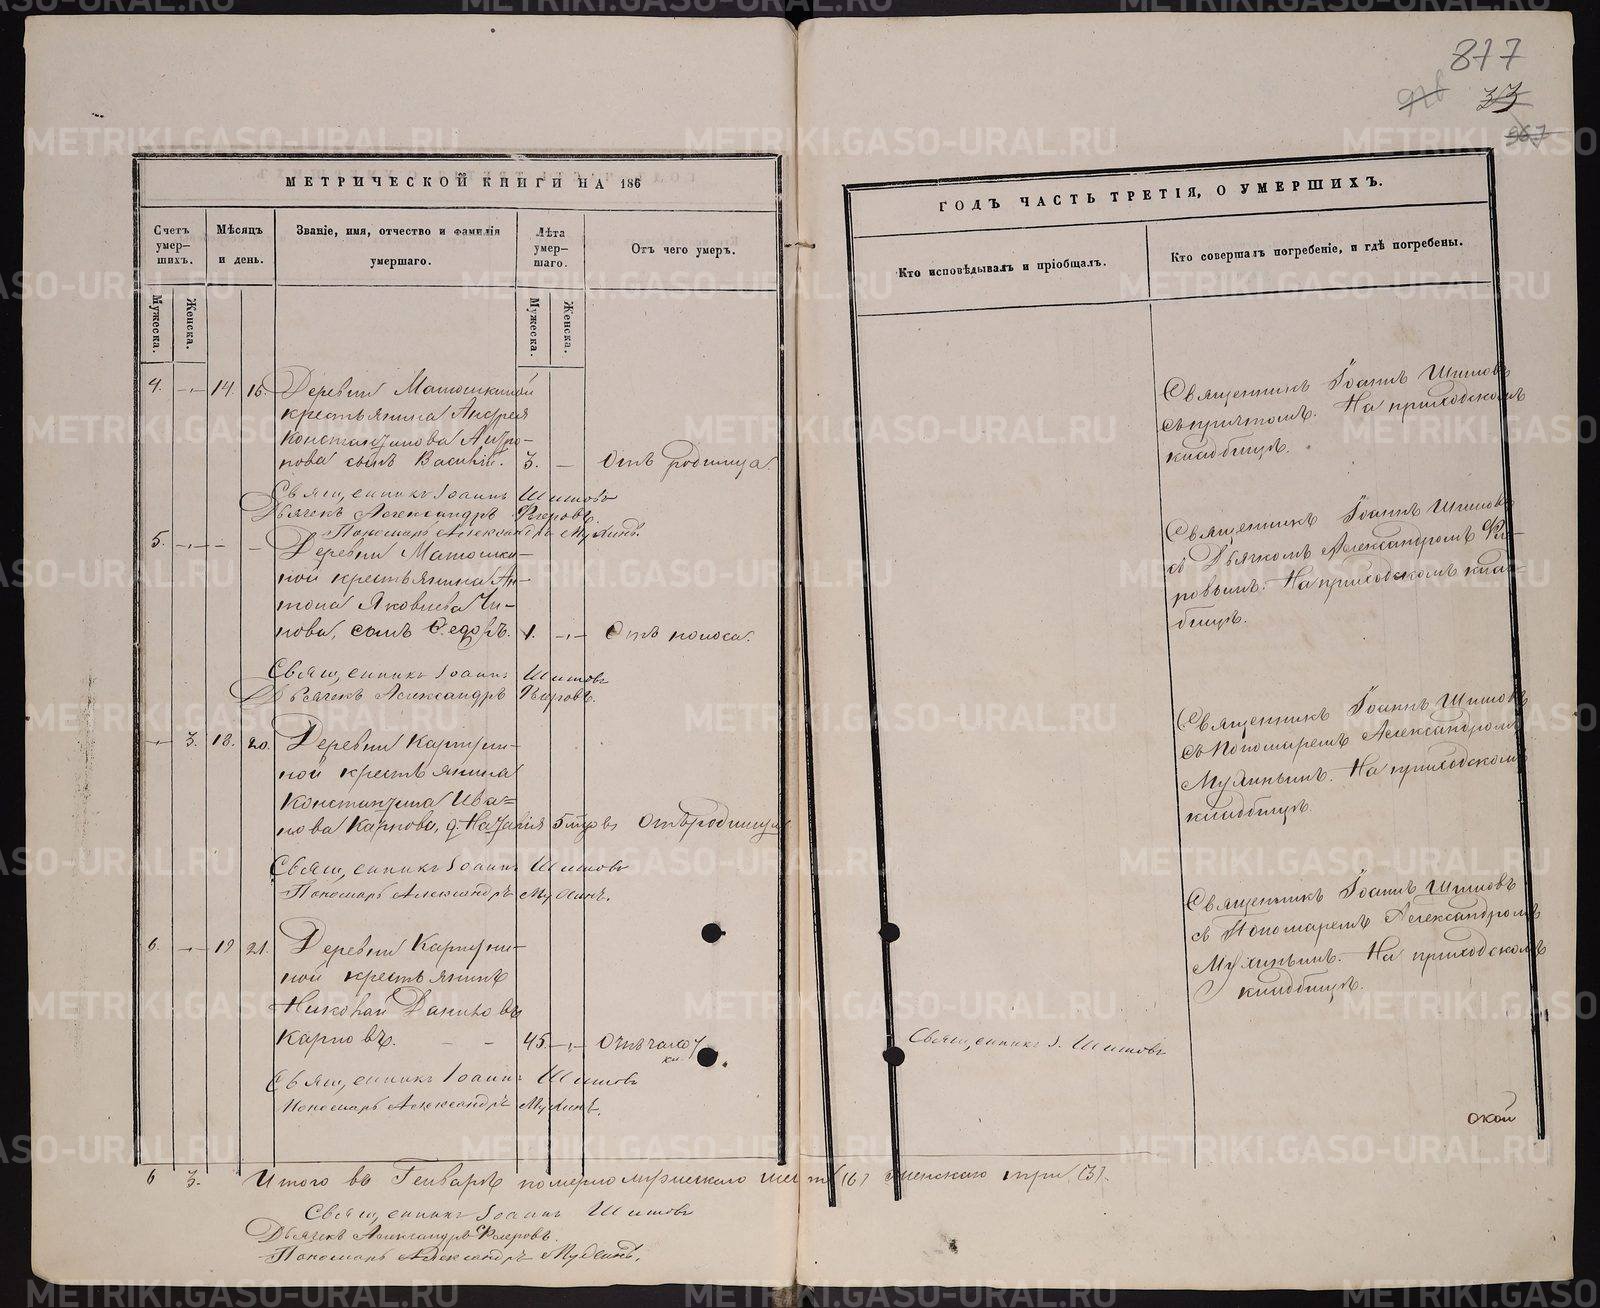 877
33
967
МЕТРИЧЕСКОЙ КНИГИ НА 186
ГОДЪ ЧАСТЬ ТРЕТІЯ, О УМЕРШИХЪ.
Счетъ умер-шихъ.
Мѣсяцъ и день.
Званіе, имя, отчество и фамилія умершаго.
Лѣта умер-шаго.
Отъ чего умеръ.
Кто исповѣдывалъ и пріобщалъ.
Кто совершалъ погребеніе, и гдѣ погребены.
Мужеска.
Женска.
Мужеска.
Женска.
4. 14. 16. Деревни Матюшкиной
крестьянина Андрея
Константинова
нова сынъ Василій. 3. — Отъ родимца.
Священникъ Іоаннъ Шишовъ
съ причтомъ. На приходскомъ
кладбищѣ.
Священникъ Іоаннъ Шишовъ
Дьячекъ Александръ
Пономарь Александръ Мухинъ.
5. — — Деревни Матюшки-
ной крестьянина Ан-
тона Яковлева
нова, сынъ Ѳедоръ. 1. — Отъ поноса.
Священникъ Іоаннъ Шишовъ
съ Дьячкомъ Александромъ
ровымъ. На приходскомъ клад-
бищѣ.
Священникъ Іоаннъ Шишовъ
Дьячекъ Александръ
— 3. 18. 20. Деревни
ной крестьянина
Константина Ива-
нова Карпова, д. Наталія 5 Отъ родимца
Священникъ Іоаннъ Шишовъ
съ Пономаремъ Александромъ
Мухинымъ. На приходскомъ
кладбищѣ.
Священникъ Іоаннъ Шишовъ
Пономарь Александръ Мухинъ.
6. — 19 21. Деревни
ной крестьянинъ
Николай Даниловъ
Карповъ. — — 45. — Отъ чахот
ки.
Священникъ Іоаннъ Шишовъ
съ Пономаремъ Александромъ
Мухинымъ. На приходскомъ
кладбищѣ.
Священникъ І. Шишовъ
Священникъ Іоаннъ Шишовъ
Пономарь Александръ Мухинъ.
окой
6 3. Итого въ Генварѣ померло мужескаго шесть (6) женскаго три (3).
Священникъ Іоаннъ Шишовъ
Дьячекъ Александръ
Пономарь Александръ Мухинъ.
METRIKI.GASO-URAL.RU